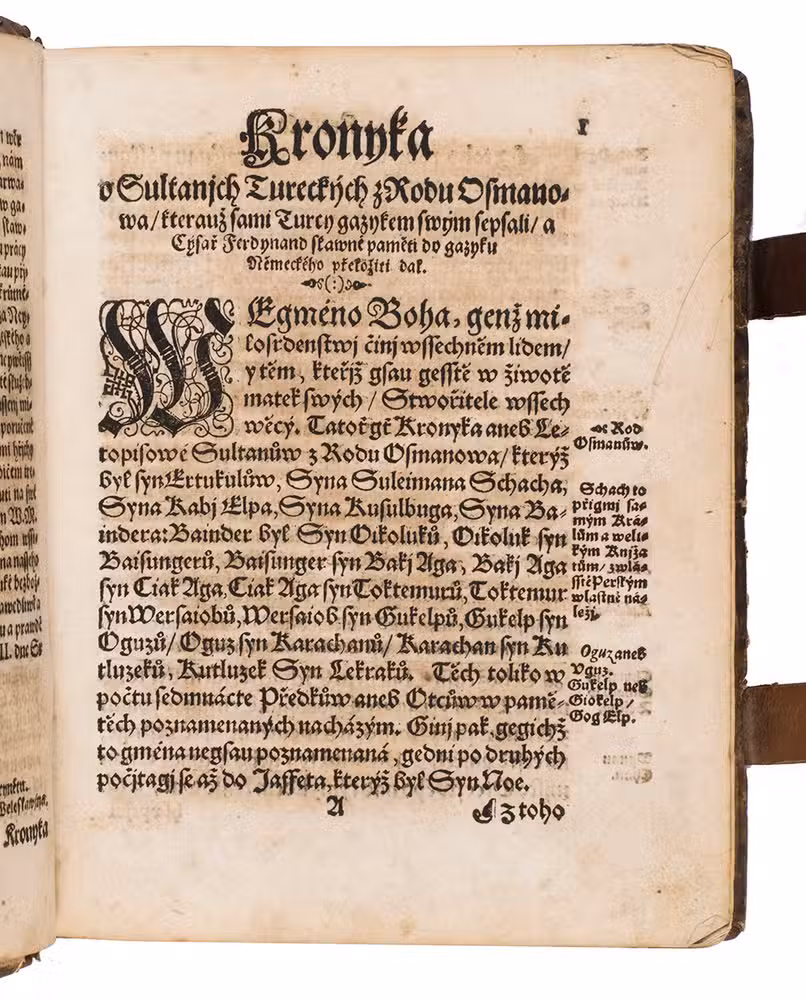 Kronyka
1
o Sultanjch Tureckých z Rodu Osmano-
wa/ kterauž sami Turcy gazykem swým sepsali/ a
Cýsař Ferdynand slawné paměti do gazyku
Německého přeložiti dal.
WE gméno Boha, genž mi-
losrdenstwj činj wssechněm lidem/
y těm, kteřjž gsau gesstě w žiwotě
matek swých / Stwořitele wssech
wěcý. Tatoť gť Kronyka aneb Le-
topisowé Sultanůw z Rodu Osmanowa/ kterýž
byl syn Ertukulůw, Syna Suleimana Schacha,
Syna Kabj Elpa, Syna Kusulbuga, Syna Ba-
indera: Bainder byl Syn Oikoluků, Oikoluk syn
Baisungerů, Baisunger syn Bakj Aga, Bakj Aga
syn Ciak Aga, Ciak Aga syn Toktemurů, Toktemur
syn Wersaiobů, Wersaiob syn Gukelpů, Gukelp syn
Oguzů/ Oguz syn Karachanů/ Karachan syn Ku
tluzeků, Kutluzek Syn Lekraků. Těch toliko w
počtu sedmnácte Předkůw aneb Otcůw w pamě-
těch poznamenaných nacházým. Ginj pak, gegichž
to gména negsau poznamenaná, gedni po druhých
počjtagj se až do Jaffeta, kterýž byl Syn Noe.
A
z toho
Rod
Osmanůw.
Schach to
přigmj sa-
mým Krá-
lům a weli-
kým Knjža
tům/ zwlá-
sstě Perským
wlastně ná-
ležj.
Oguz aneb
Vguz.
Gukelp neb
Giokelp/
Gog Elp.
Kronyka